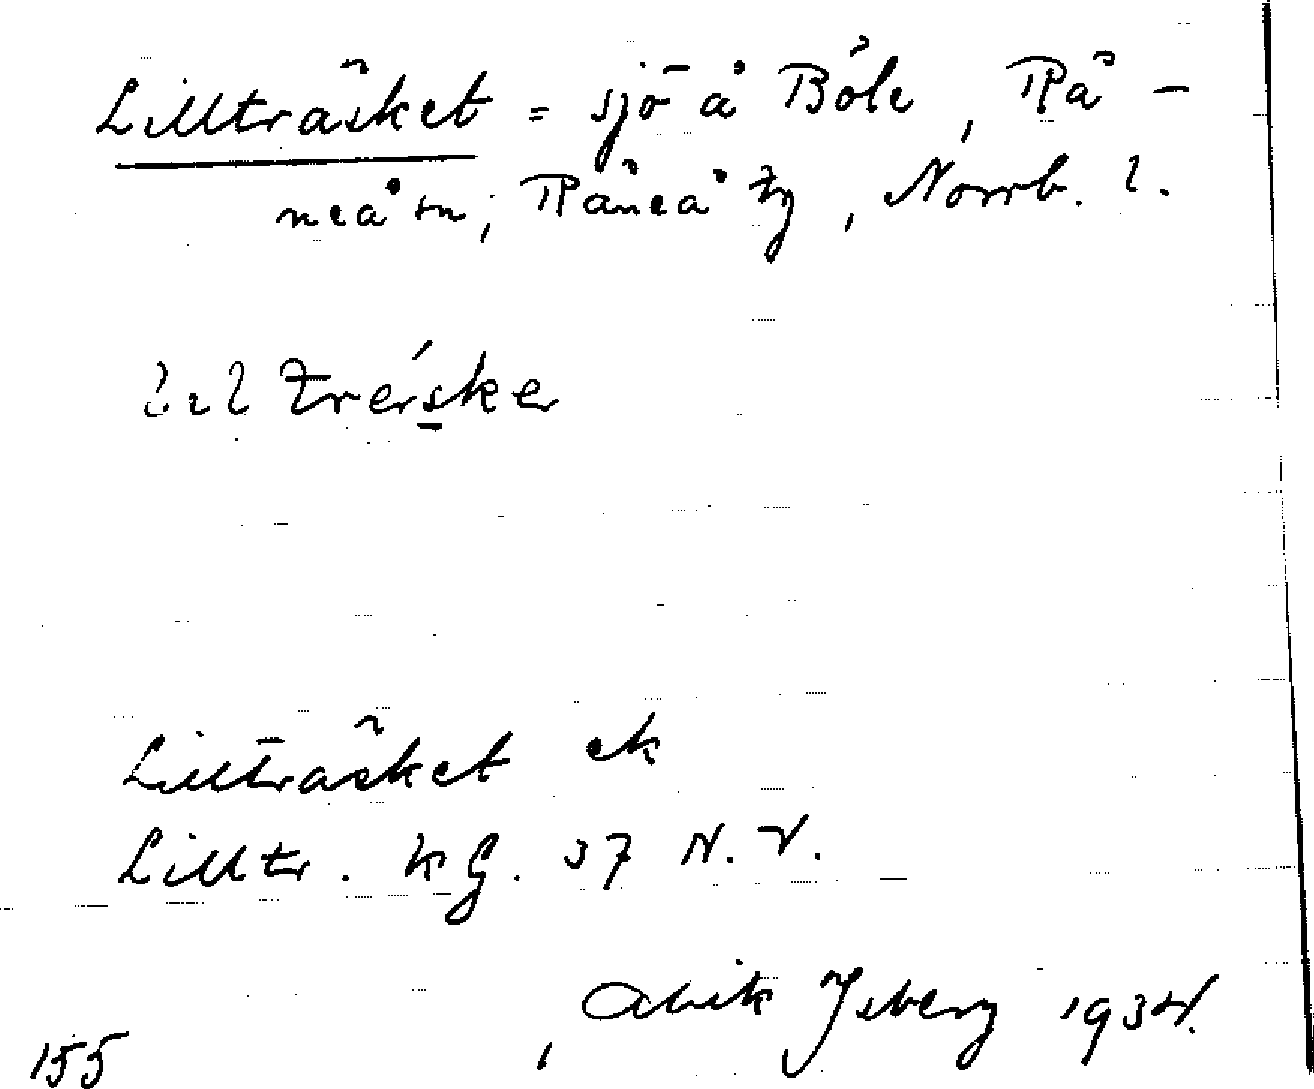 Lillträsket = sjö å Böle, Rå-
neå sn, Råneå tg, Norrb. l.
lıl trersker
Lillträsket ek
Lilltr. kg. 37 N.V.
Isberg 1934.
155